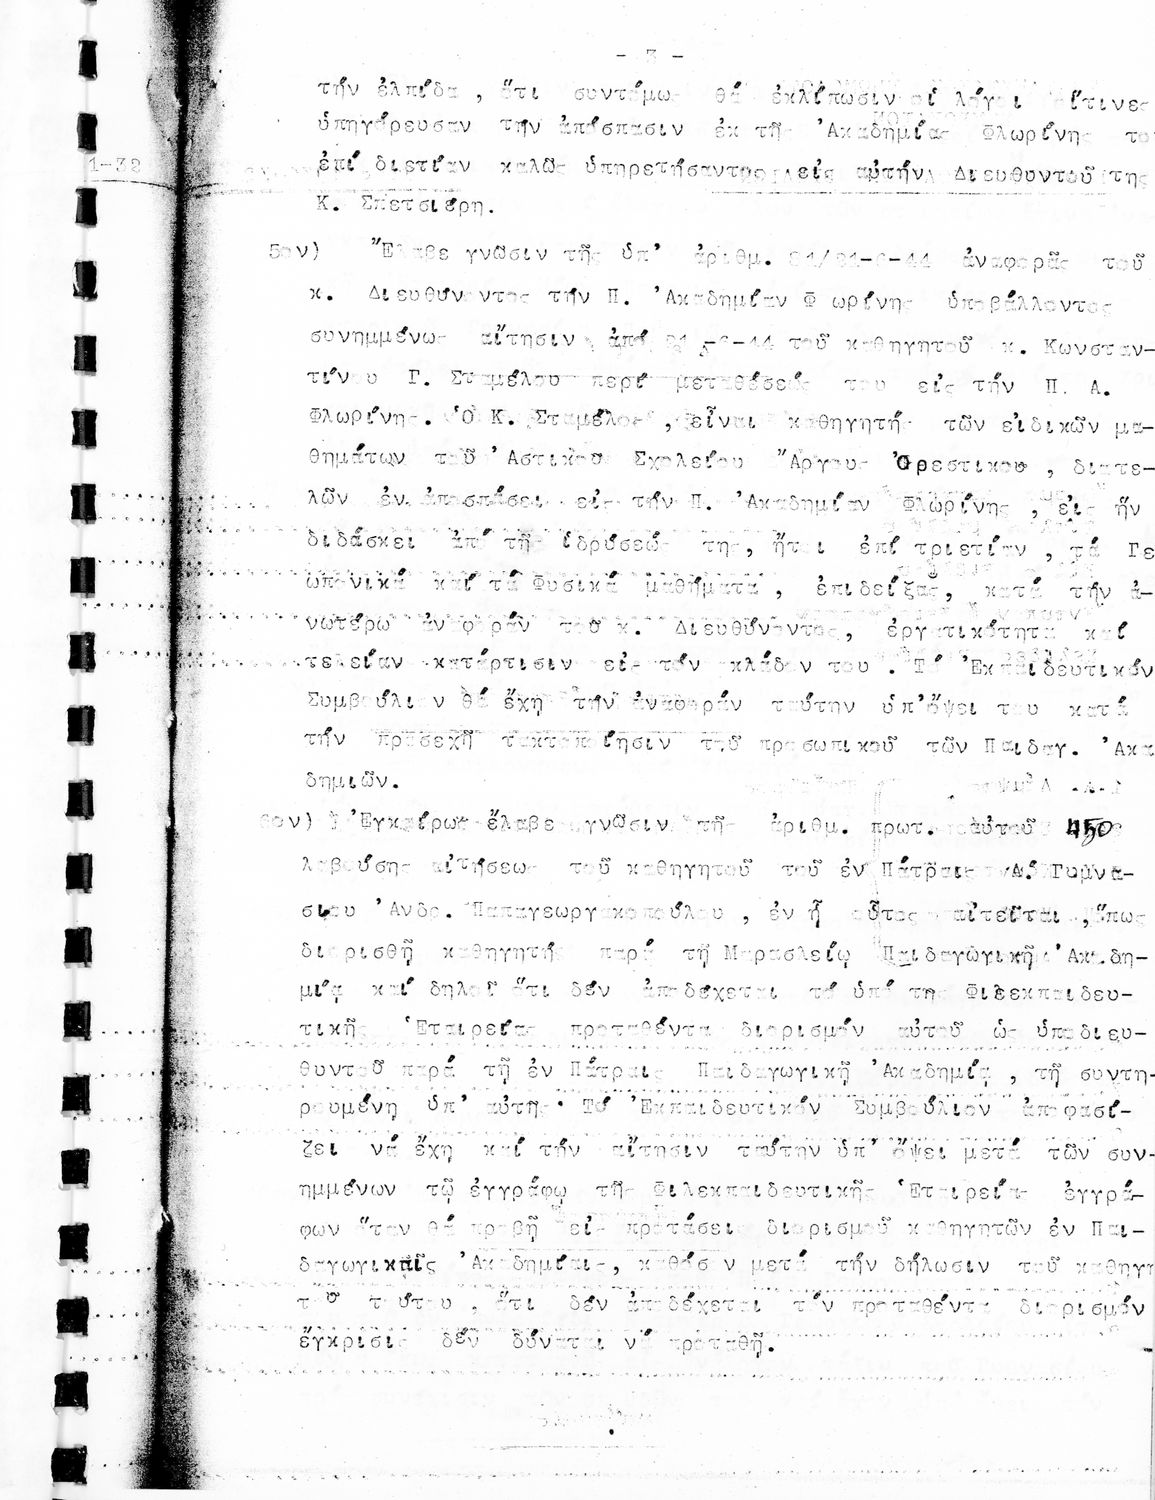 - 3 -
τήν ἐλπίδα , ὅτι συντόμως θά ἐκλίπωσιν οἱ λόγοι οἵτινες
ὑπηγόρευσαν τήν ἀπόσπασιν ἐκ τῆς 'Ακαδημίας Φλωρίνης το
1-32
ἐπί διετίαν καλῶς ὑπηρετήσαντος εἰς αὐτήν Διευθυντοῦ της
Κ. Σπετσιέρη.
5ον) "Ελαβε γνῶσιν τῆς ὑπ' ἀριθμ. ἀναφορᾶς τοῦ
κ. Διευθύνοντος τήν Π. 'Ακαδημίαν Φ ωρίνης ὑποβάλλοντος
συνημμένως αἴτησιν ἀπό -44 τοῦ καθηγητοῦ κ. Κωνσταν-
τίνου Γ. Σταμέλου περί μεταθέσεώς του εἰς τήν Π. Α.
Φλωρίνης. 'Ο Κ. Σταμέλος , εἶναι καθηγητής τῶν εἰδικῶν μα-
θημάτων τοῦ 'Αστικοῦ Σχολείου "Αργους 'Ορεστικου , διατε-
λῶν ἐν ἀποσπάσει εἰς τήν Π. 'Ακαδημίαν Φλωρίνης , εἰς ἥν
διδάσκει ἀπό τῆς ἱδρύσεώς της, ἤτοι ἐπί τριετίαν , τά Γε
ωπονικά καί τά Φυσικά μαθήματα , ἐπιδείξας, κατά τήν ἀ-
νωτέρω ἀναφοράν τοῦ κ. Διευθύνοντος, ἐργατικότητα καί
τελείαν κατάρτισιν εἰς τόν κλάδον του . Τό 'Εκπαιδευτικόν
Συμβούλιον θά ἔχη τήν ἀναφοράν ταύτην ὑπ'ὄψει του κατά
τήν προσεχῆ τακτοποίησιν τοῦ προσωπικοῦ τῶν Παιδαγ. 'Ακα
δημιῶν.
6ον) 'Εγκαίρως ἔλαβε γνῶσιν τῆς ἀριθμ. πρωτ. αὐτοῦ 450
λαβούσης αἰτήσεως τοῦ καθηγητοῦ τοῦ ἐν Πάτραις Α. Γυμνα-
σίου 'Ανδρ. Παπαγεωργακοπούλου , ἐν ᾗ οὗτος αἰτεῖται , ὅπως
διορισθῇ καθηγητής παρά τῇ Μαρασλείῳ Παιδαγωγικῇ 'Ακαδη-
μίᾳ καί δηλοῖ ὅτι δέν ἀποδέχεται τό ὑπό της Φιλεκπαιδευ-
τικῆς 'Εταιρείας προταθέντα διορισμόν αὐτοῦ ὡς ὑποδιευ-
θυντοῦ παρά τῇ ἐν Πάτραις Παιδαγωγικῇ 'Ακαδημίᾳ , τῇ συντη-
ρουμένῃ ὑπ' αὐτῆς· Τό 'Εκπαιδευτικόν Συμβούλιον ἀποφασί-
ζει νά ἔχῃ καί τήν αἴτησιν ταύτην ὑπ' ὄψει μετά τῶν συν-
ημμένων τῷ ἐγγράφῳ τῆς Φιλεκπαιδευτικῆς 'Εταιρείας ἐγγρά-
φων ὅταν θά προβῇ εἰς προτάσεις διορισμοῦ καθηγητῶν ἐν Παι-
δαγωγικαῖς 'Ακαδημίαις, καθόσον μετά τήν δήλωσιν τοῦ καθηγη
τοῦ τούτου , ὅτι δέν ἀποδέχεται τόν προταθέντα διορισμόν
ἔγκρισις δέν δύναται νά προταθῇ.